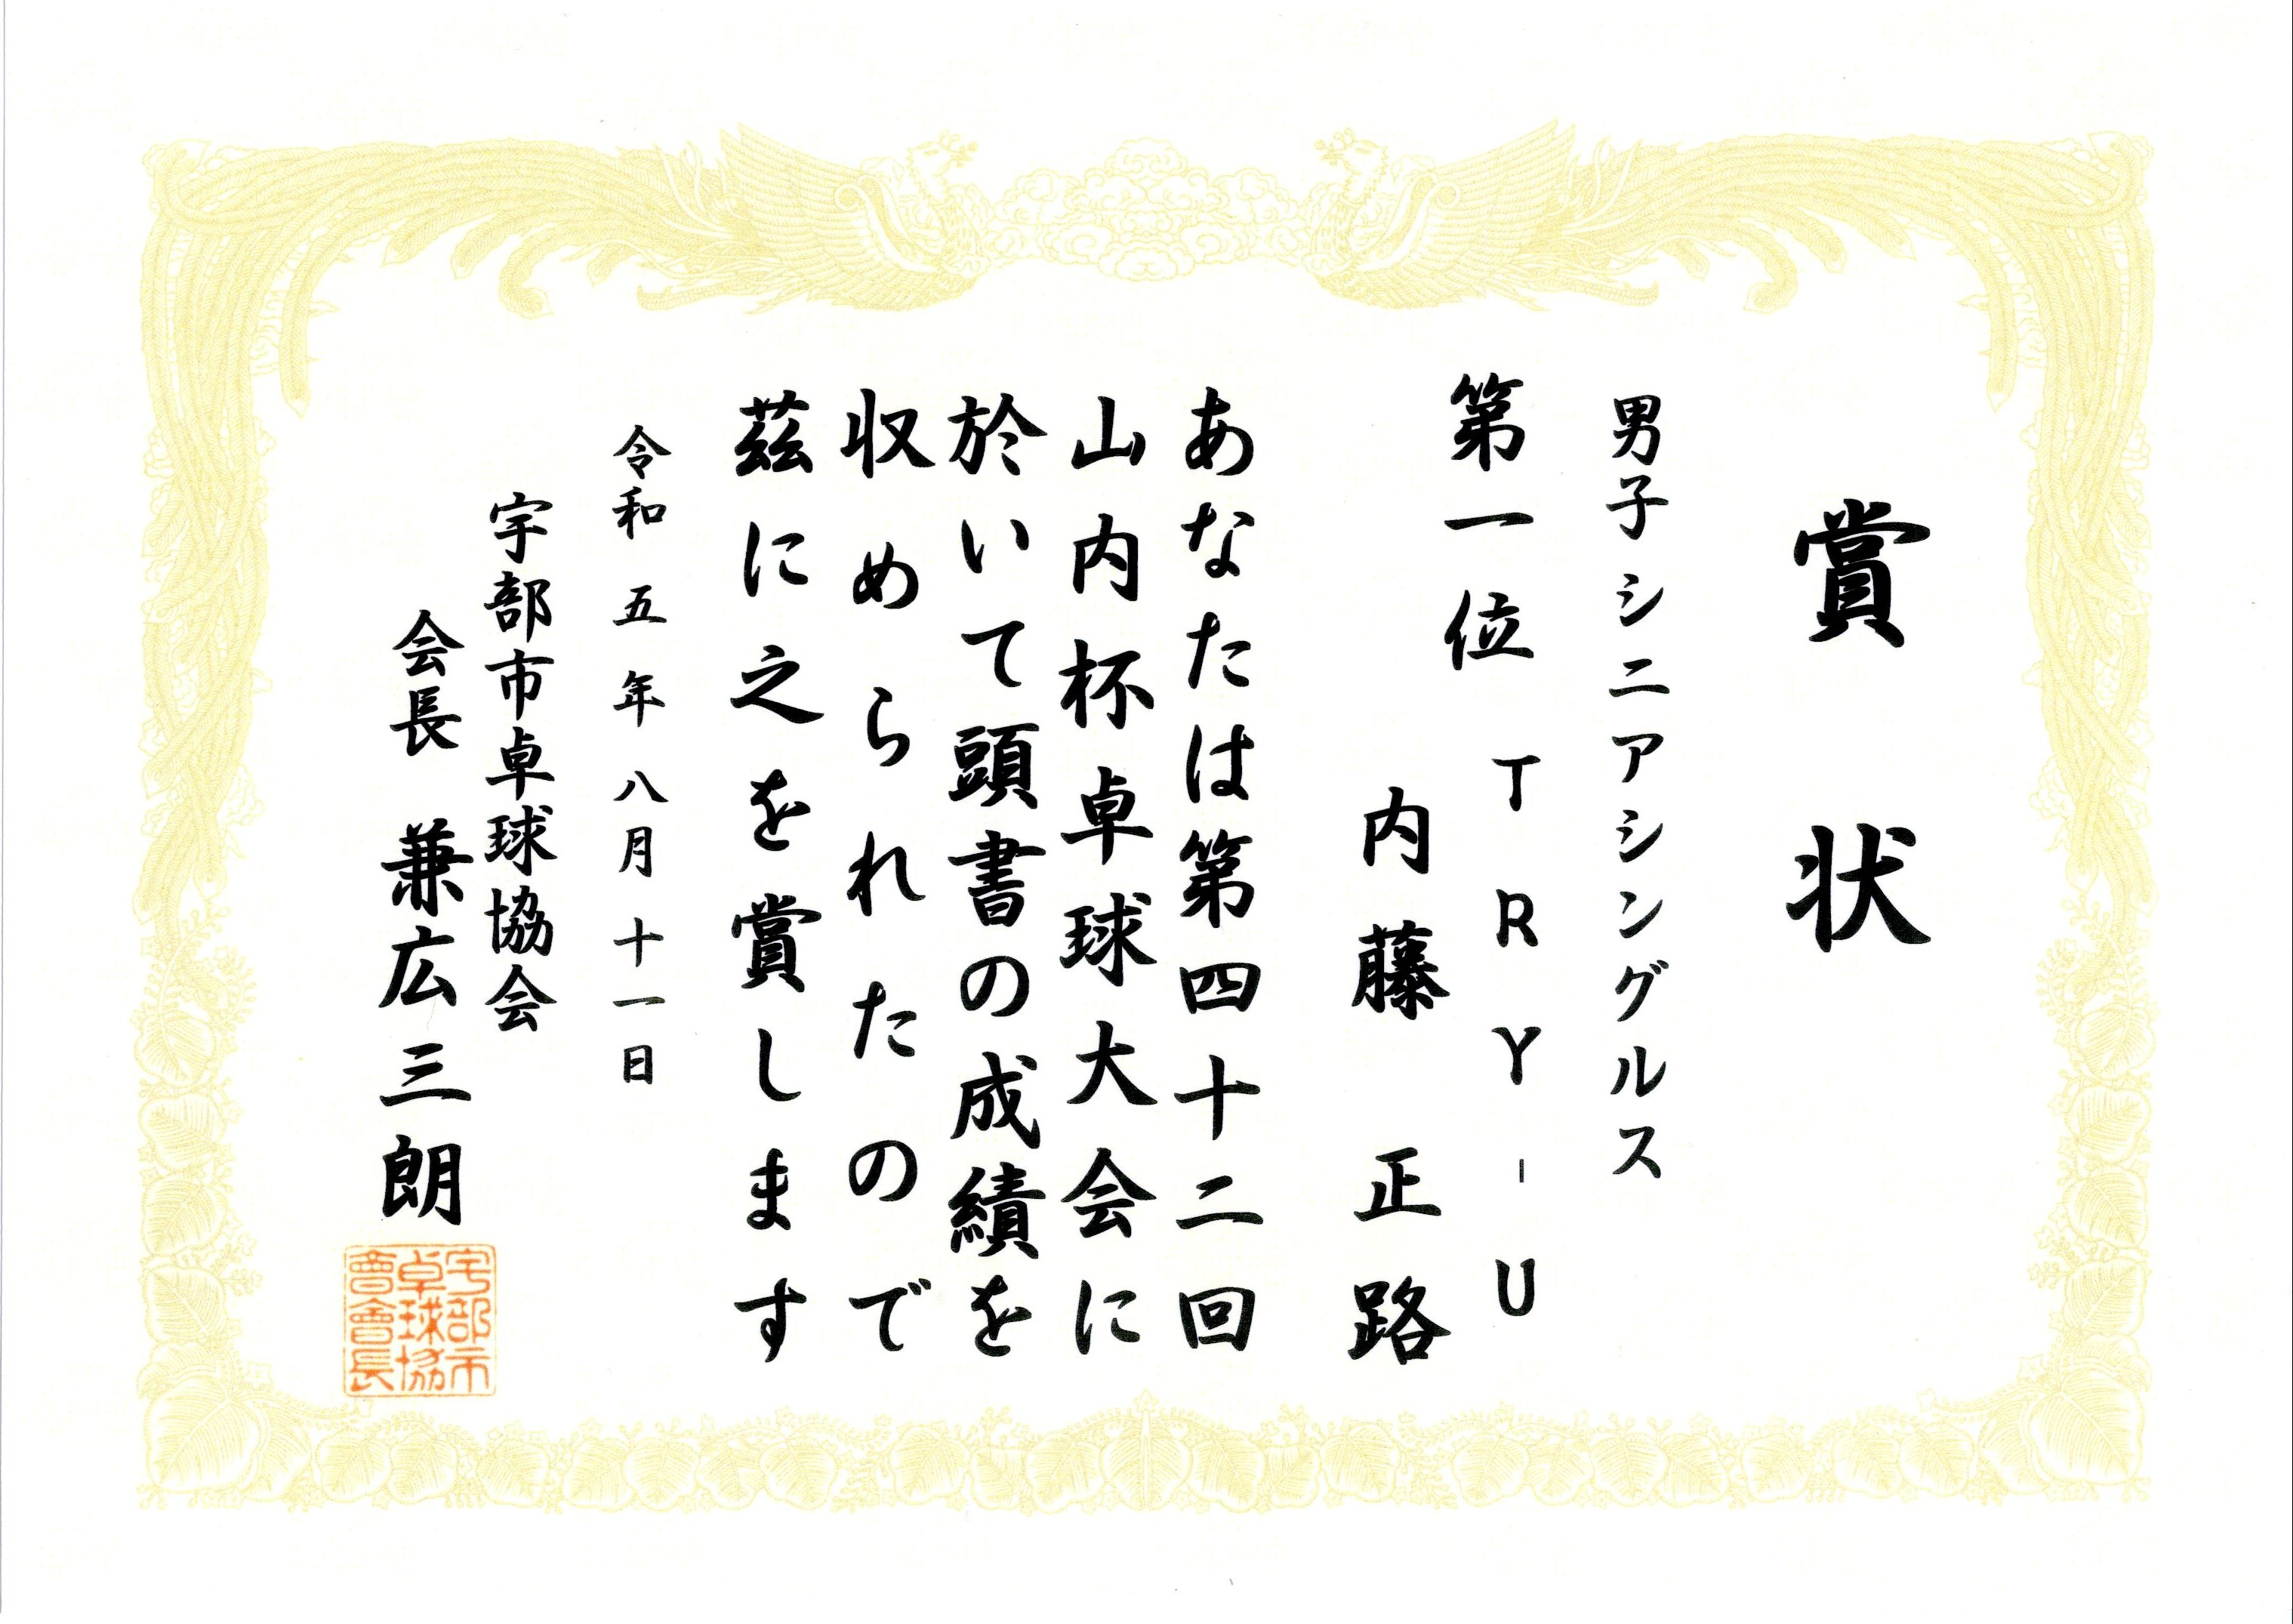 賞状
男子シニアシングルス
第一位
TRY-U
内藤 正路
あなたは第四十二回
山内杯卓球大会に
於いて頭書の成績を
収められたので
茲に之を賞します
令和五年八月十一日
宇部市卓球協会
会長 兼広三朗
宇部市
卓球協
會會長